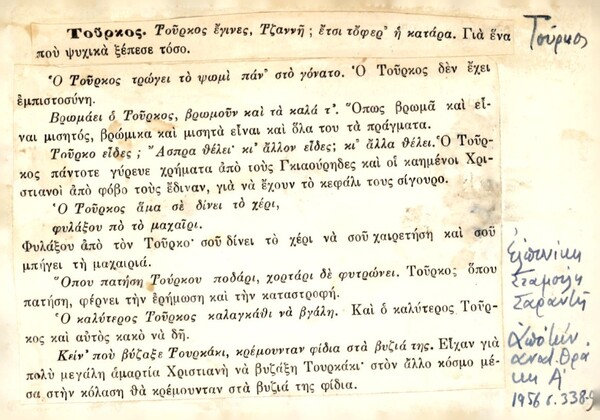 Τοῦρκος. Τοῦρκος ἔγινες, Τζαννῆ ; ἔτσι τὄφερ' ἡ κατάρα. Γιὰ ἕνα
ποὺ ψυχικὰ ξέπεσε τόσο.
Τούρκος
Ὁ Τοῦρκος τρώγει τὸ ψωμὶ πάν' στὸ γόνατο. Ὁ Τοῦρκος δὲν ἔχει
ἐμπιστοσύνη.
Βρωμάει ὁ Τοῦρκος, βρωμοῦν καὶ τὰ καλά τ'. Ὅπως βρωμᾶ καὶ εἶ-
ναι μισητός, βρώμικα καὶ μισητὰ εἶναι καὶ ὅλα του τὰ πράγματα.
Τοῦρκο εἶδες ; Ἄσπρα θέλει· κι' ἄλλον εἶδες; κι' ἄλλα θέλει. Ὁ Τοῦρ-
κος πάντοτε γύρευε χρήματα ἀπὸ τοὺς Γκιαούρηδες καὶ οἱ καημένοι Χρι-
στιανοὶ ἀπὸ φόβο τοὺς ἔδιναν, γιὰ νὰ ἔχουν τὸ κεφάλι τους σίγουρο.
Ὁ Τοῦρκος ἅμα σὲ δίνει τὸ χέρι,
φυλάξου πὸ τὸ μαχαῖρι.
Φυλάξου ἀπὸ τὸν Τοῦρκο· σοῦ δίνει τὸ χέρι νὰ σοῦ χαιρετήση καὶ σοῦ
μπήγει τὴ μαχαιριά.
Ὅπου πατήση Τούρκου ποδάρι, χορτάρι δὲ φυτρώνει. Τοῦρκος ὅπου
πατήση, φέρνει τὴν ἐρήμωση καὶ τὴν καταστροφή.
Ὁ καλύτερος Τοῦρκος καλαγκάθι νὰ βγάλη. Καὶ ὁ καλύτερος Τοῦρ-
κος καὶ αὐτὸς κακὸ νὰ δῆ.
Κεῖν' ποὺ βύζαξε Τουρκάκι, κρέμουνταν φίδια στὰ βυζιά της. Εἶχαν γιὰ
πολὺ μεγάλη ἁμαρτία Χριστιανὴ νὰ βυζάξη Τουρκάκι· στὸν ἄλλο κόσμο μέ-
σα στὴν κόλαση θὰ κρέμουνταν στὰ βυζιά της φίδια.
Ἐλπινίκη
Σταμούλη
Σαραντῆ
Ἀπὸ τὴν
ἀνατ. Θρά
κη Α'
1956 σ. 338-9